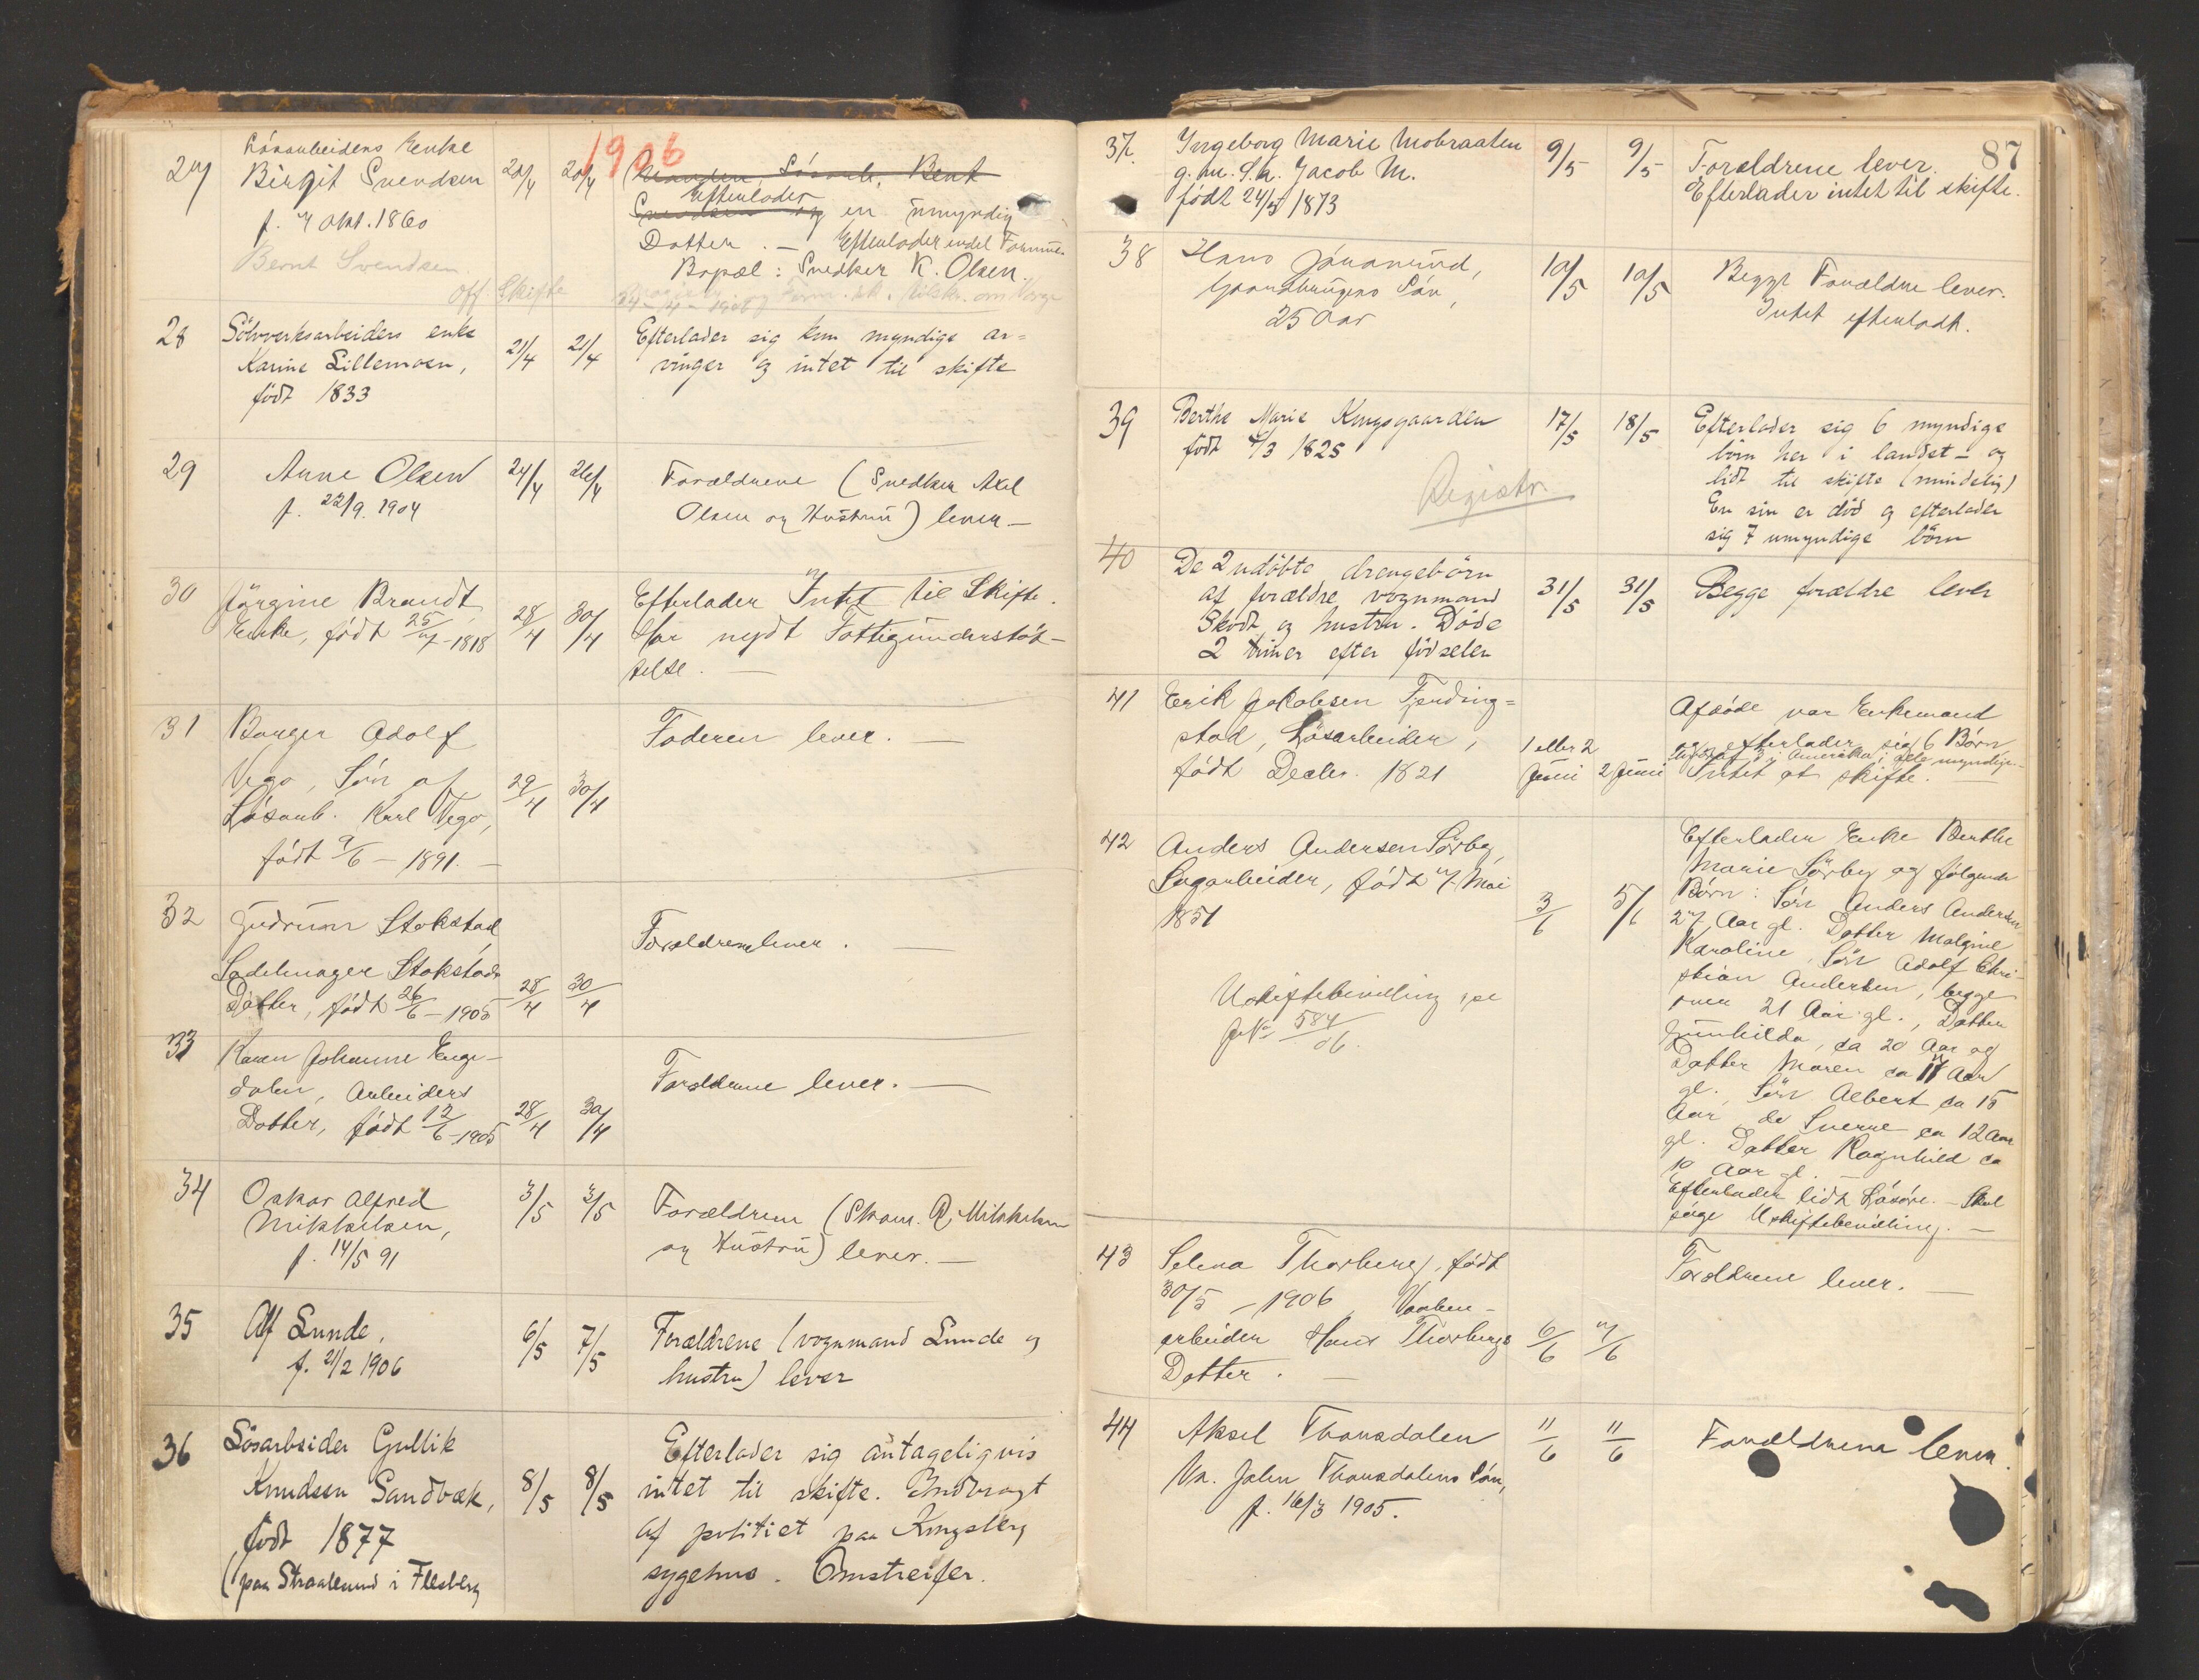 1906
27
Løsarbeiders Enke
Birgit Svendsen
f. 7 Okt. 1860
Bernt Svendsen
off. Skifte
20/4
20/4
Manden, Løsarb. Bent
Efterlader
Svendsen og en umyndig
Datter. — Efterlader endel Formue.
Bopæl: Snedker K. Olsen.
28
Sölvverksarbeiders enke
Karine Lillemoen,
född 1833
21/4
21/4
Efterlader sig kun myndige ar=
vinger og intet til skifte
29
Anne Olsen
f. 22/9. 1904
24/4
26/4
Forældrene (Snedker Axel
Olsen og Hustru) lever —
30
Jörgine Brandt,
Enke, født 25/7 - 1818
28/4
30/4
Efterlader Intet til Skifte.
Har nydt Fattigunderstøt-
telse. —
31
Borger Adolf
Vego, Søn af
Løsarb. Karl Vego,
født 9/6 — 1891. —
29/4
30/4
Faderen lever. —
32
Gudrun Stokstad
Sadelmager Stokstads
Datter, født 26/6 — 1905
28/4
30/4
Forældrene lever. —
33
Karen Johanne Enge-
dalen, Arbeiders
Datter, født 12/6 - 1905
28/4
30/4
Forældrene lever. —
34
Oskar Alfred
Mikkelsen,
f. 14/5 91
3/5
3/5
Forældrene (Skom. R. Mikkelsen
og Hustru) lever. —
35
Alf Lunde,
f. 21/2 1906
6/5
7/5
Forældrene (vognmand Lunde og
hustru) lever
36
Lösarbeider Gullik
Knudsen Sandbæk,
född 1877
(paa Straalsund i Flesberg
8/5
8/5
Efterlader sig antageligvis
intet til skifte. Indbragt
af politiet paa Kongsberg
sygehus. Omstreifer.
87
37.
Ingeborg Marie Mobraaten
g. m. S.a. Jacob M.
født 24/5 1873
9/5
9/5
Forældrene lever.
Efterlader intet til skifte.
38
Hans
Gaardbrugers Søn,
25 Aar
10/5
10/5
Begge Forældre lever.
Intet efterladt.
39
Berthe Marie Kongsgaarden
født 4/3 1825
Registr.
17/5
18/5
Efterlader sig 6 myndige
börn her i landet — og
lidt til skifte (mindelig)
En sön er död og efterlader
sig 7 umyndige börn
40
De 2 udöbte drengebörn
af forældre vognmand
Skodt og hustru. Döde
2 timer efter födselen
31/5
31/5
Begge forældre lever
41
Erik Jakobsen Fjerding=
stad, Løsarbeider,
født Decbr. 1821
1 eller 2
Juni
2 Juni
Afdöde var Enkemand
og efterlader sig 6 Børn,
hvoraf 3 i Amerika, alle myndige.
Intet at skifte. —
42
Anders Andersen Sørby,
Sagarbeider, født 7. Mai
1851
Uskiftebevilling, se
J.No 584/06.
3/6
5/6
Efterlader Enke Berthe
Marie Sørby og følgende
Børn: Søn Anders Andersen
27 Aar gl. Datter Malgine
Karoline, Søn Adolf Chri-
stian Andersen, begge
over 21 Aar gl., Datter
Gunhilda, ca 20 Aar og
Datter Maren ca 17 Aar
gl., Søn Albert ca 15
Aar, do Sverre ca 12 Aar
gl. Datter Ragnhild ca
10 Aar gl. —
Efterlader lidt Løsøre. — Skal
søge Uskiftebevilling. —
43
Selma Thorberg, født
30/5 — 1906, Vaaben-
arbeider Hans Thorbergs
Datter. —
6/6
7/6
Forældrene lever. —
44
Aksel Thorsdalen
Va. John Thorsdalens Søn,
f. 16/3 1905.
11/6
11/6
Forældrene lever.